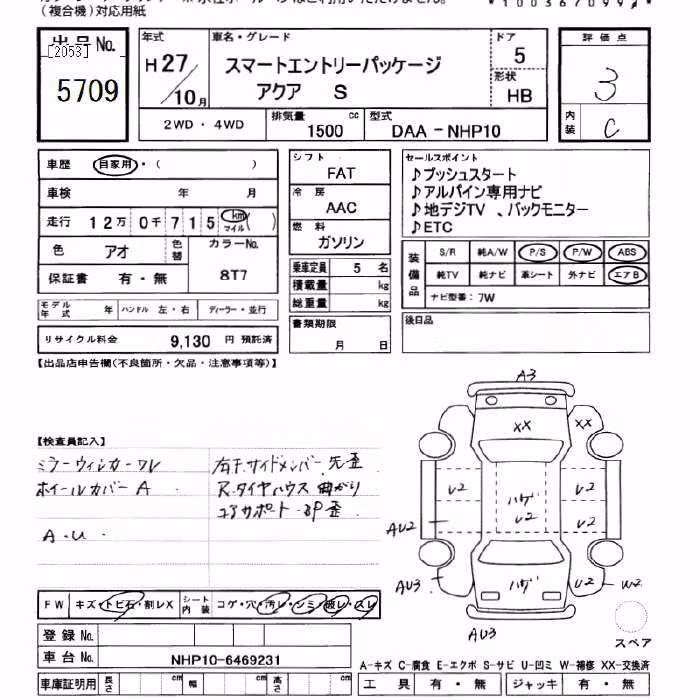 (複合機)対応用紙
*100367099*
出品No.
[2053]
5709
年式
H27
10月
車名・グレード
スマートエントリーパッケージ
アクア S
ドア
5
形状
HB
評価点
3
内装
C
2WD・4WD
排気量
1500
cc
型式
DAA-NHP10
車歴 自家用・( )
車検 年 月
走行 12万0千715km マイル ( )
色 アオ 色替 カラーNo.
8T7
保証書 有・無
モデル年式 年 ハンドル 左・右 ディーラー・並行
リサイクル料金 9,130 円 預託済
シフト
FAT
冷房
AAC
燃料
ガソリン
乗車定員 5 名
積載量 kg
総重量 kg
書類期限
月 日
セールスポイント
♪プッシュスタート
♪アルパイン専用ナビ
♪地デジTV 、バックモニター
♪ETC
装備品
S/R 純A/W P/S P/W ABS
純TV 純ナビ 革シート 外ナビ エアB
ナビ型番:7W
後日品
【出品店申告欄(不良箇所・欠品・注意事項等)】
【検査員記入】
ミラーウィンカーワレ
ホイールカバー A
A・U
右F.サイドメンバー先歪
R.タイヤハウス曲がり
コアサポート・BP歪
A3
XX
XX
U2
ハゲ
U2
U2
U2
AU2
AU3
ハゲ
U2
W2
AU3
スペア
FW キズ・トビ石・割レX シート内装 コゲ・穴・汚レ・シミ・破レ・スレ
登録No.
車台No. NHP10-6469231
車庫証明用 長さ cm 幅 cm 高さ cm
A-キズ C-腐食 E-エクボ S-サビ U-凹ミ W-補修 XX-交換済
工具 有・無 ジャッキ 有・無